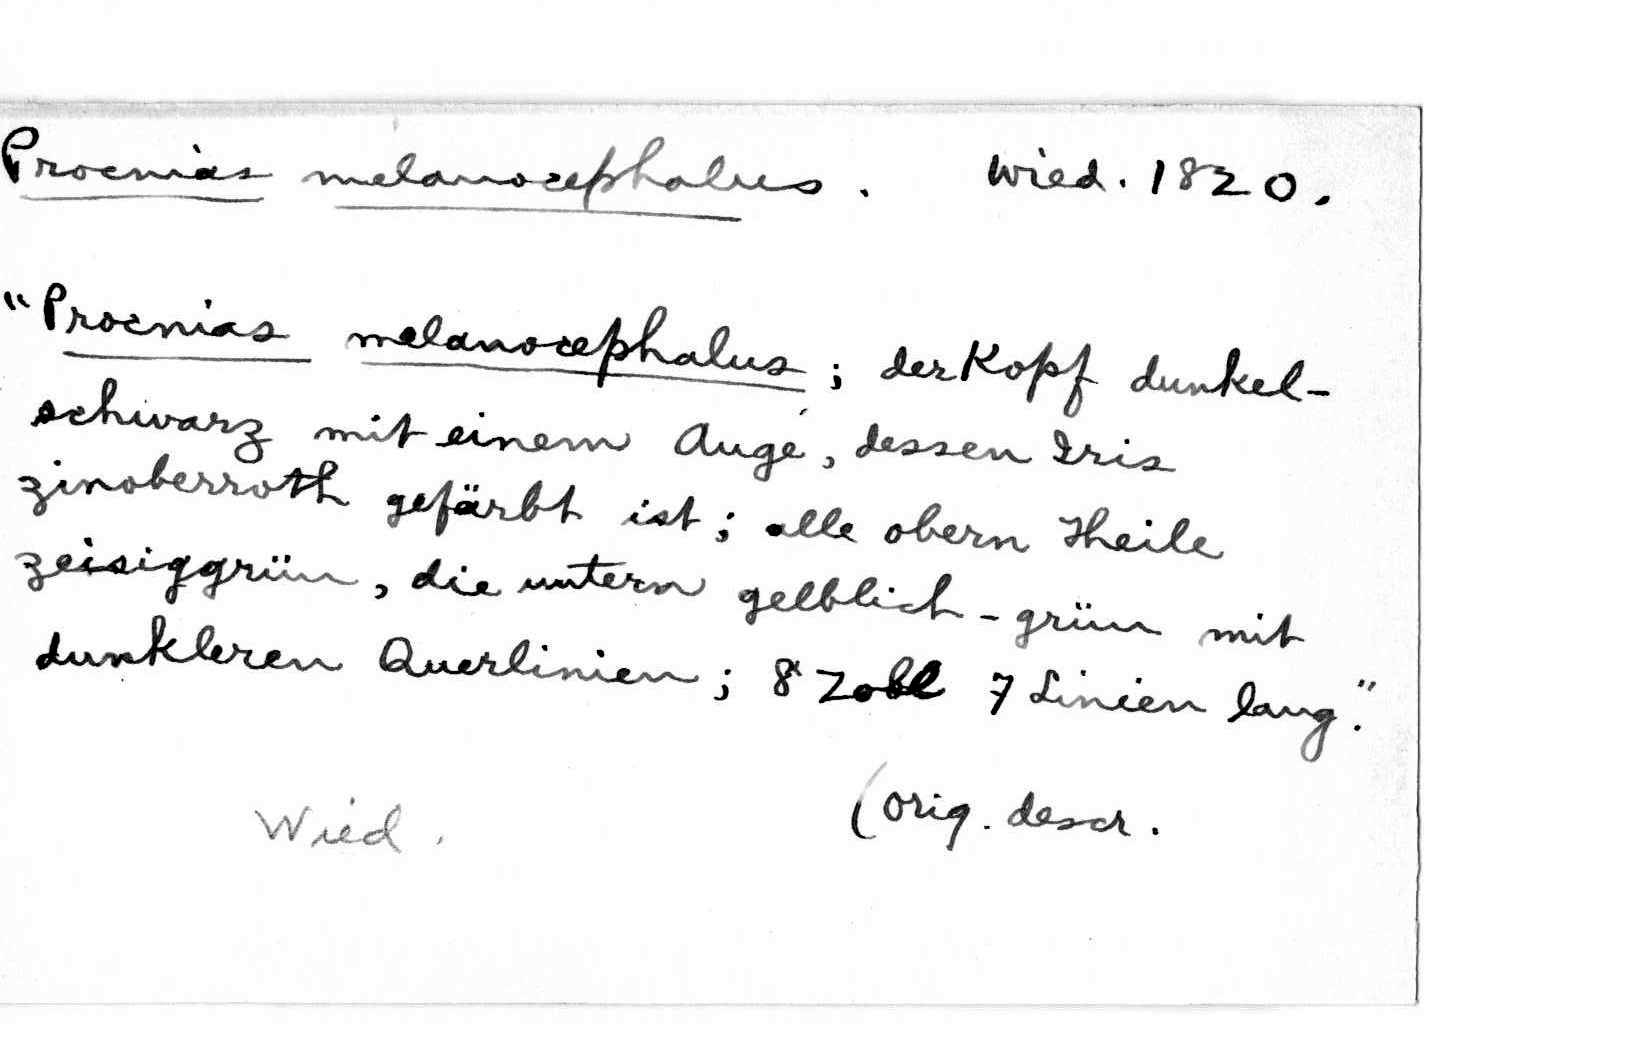 Procnias melanocephalus. Wied. 1820.
"Procnias melanocephalus; der Kopf dunkel-
schwarz mit einem Auge, dessen Iris
zinoberroth gefärbt ist; alle obern Theile
zeisiggrün, die untern gelblich-grün mit
dunkleren Querlinien; 8 Zoll 7 Linien lang."
(orig. descr.
Wied.